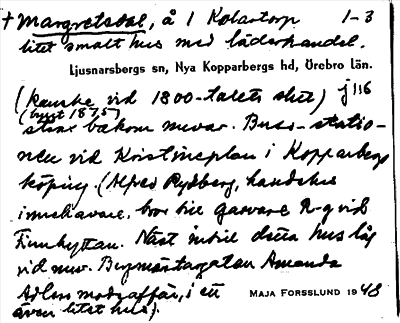 + Margretsdal, å 1 Kolartorp 1-3
litet smalt hus med läderhandel.
Ljusnarsbergs sn, Nya Kopparbergs hd, Örebro län.
(kanske vid 1800-talets slut) j116
(byggt 1875)
strax bakom nuvar. Buss-statio-
nen vid Kristineplan i Kopparbergs
köping. (Alfred Rydberg, handelns
innehavare, bror till garvare R-g vid
Finnhyttan. Näst intill detta hus låg
vid nuv. Bergmästaregatan Amanda
Adlers modeaffär, i ett
även litet hus).
MAJA FORSSLUND 1948